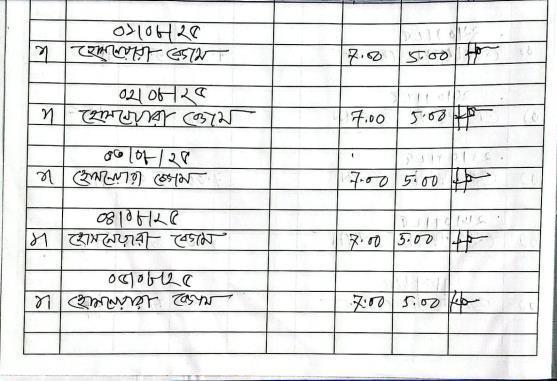 ০১/০৮/২৫
১। হোসনেয়ারা বেগম 7.00 5.00
০২/০৮/২৫
১। হোসনেয়ারা বেগম 7.00 5.00
০৩/০৮/২৫
১। হোসনেয়ারা বেগম 7.00 5.00
০৪/০৮/২৫
১। হোসনেয়ারা বেগম 7.00 5.00
০৫/০৮/২৫
১। হোসনেয়ারা বেগম 7.00 5.00